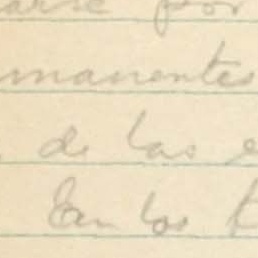 por
manentes
de las e
En los